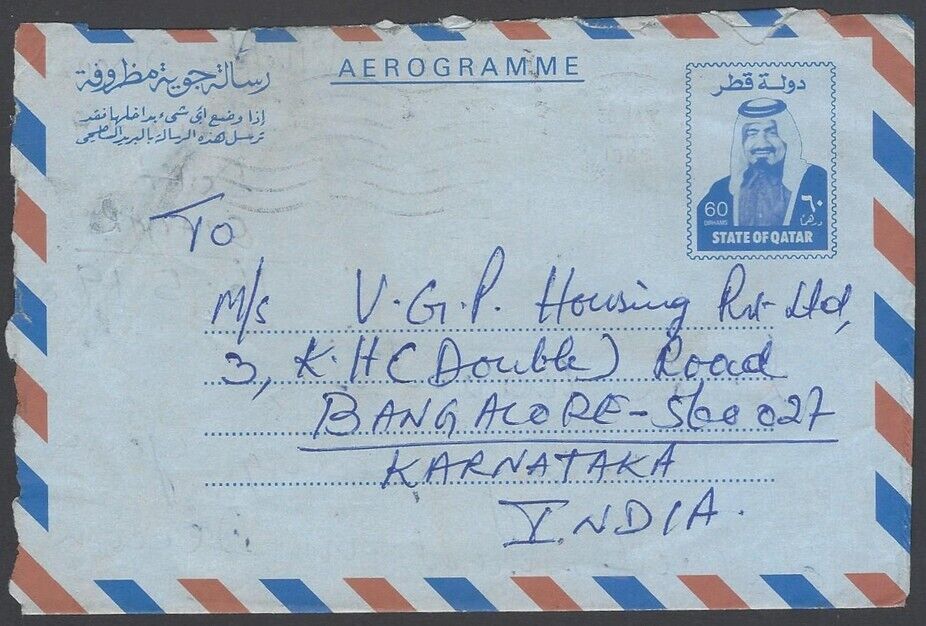 رسالة جوية مظروفة
إذا وضع اي شيء بداخلها فقد
ترسل هذه الرسالة بالبريد السطحي
AEROGRAMME
دولة قطر
60
DIRHAMS
٦٠
درهما
STATE OF QATAR
To
M/s V.G.P. Housing Pvt Ltd,
3, K.H (Double) Road
BANGALORE-560027
KARNATAKA
INDIA.